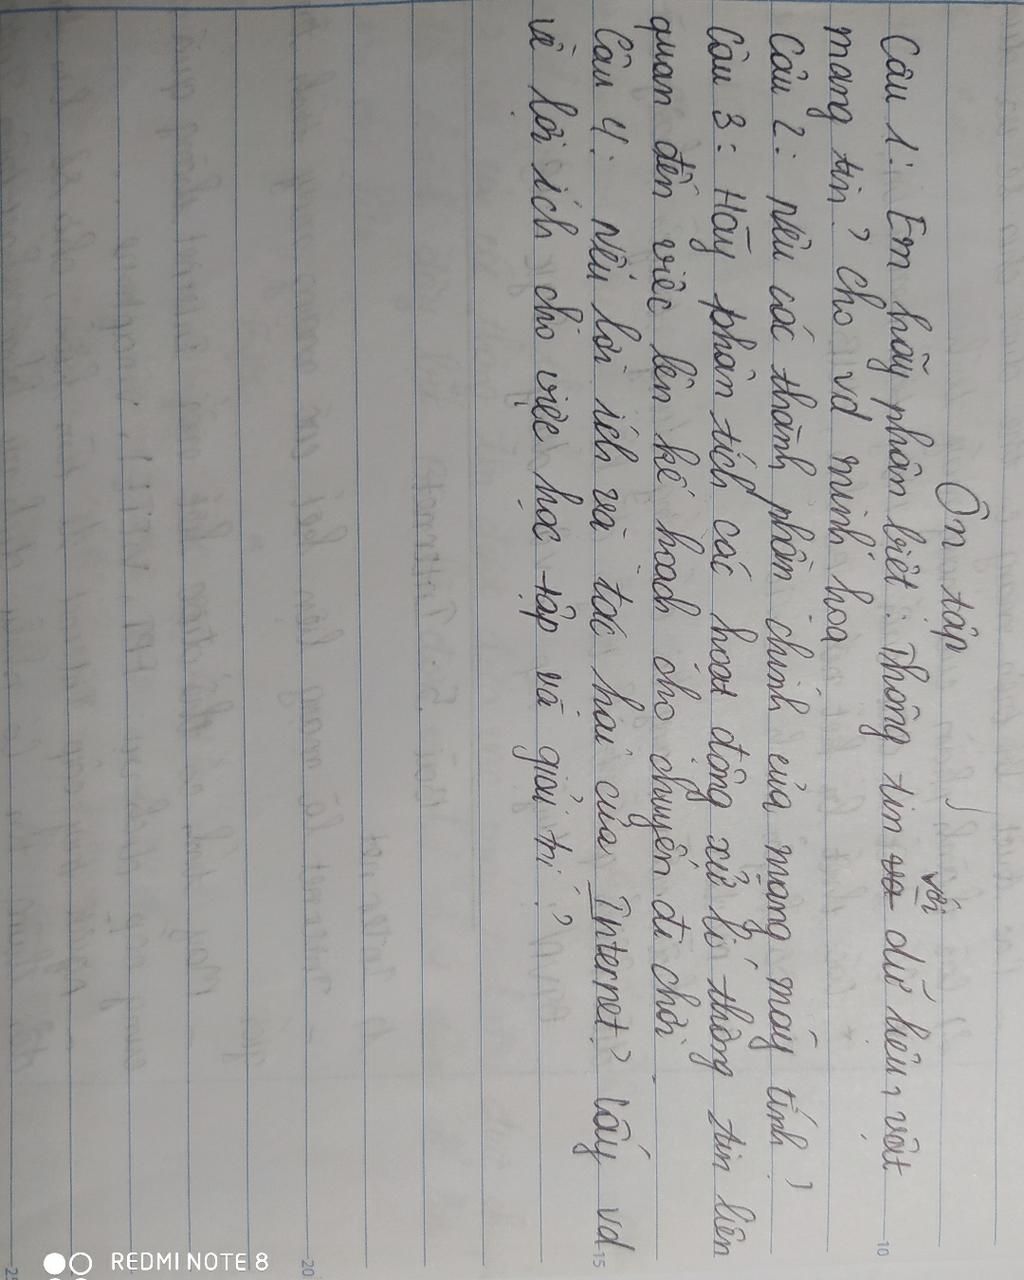 Ôn tập
Câu 1: Em hãy phân biệt: Thông tin với dữ liệu, vật
mang tin? cho vd minh hoa
Câu 2: nêu các thành phần chính của mạng máy tính?
Câu 3: Hãy phân tích các hoạt động xử lí thông tin liên
quan đến việc lên kế hoach cho chuyến đi chơi.
Câu 4: Nêu lợi ích và tác hại của Internet? Lấy vd
về lợi ích cho việc học tập và giải trí?
10
15
20
25
REDMI NOTE 8